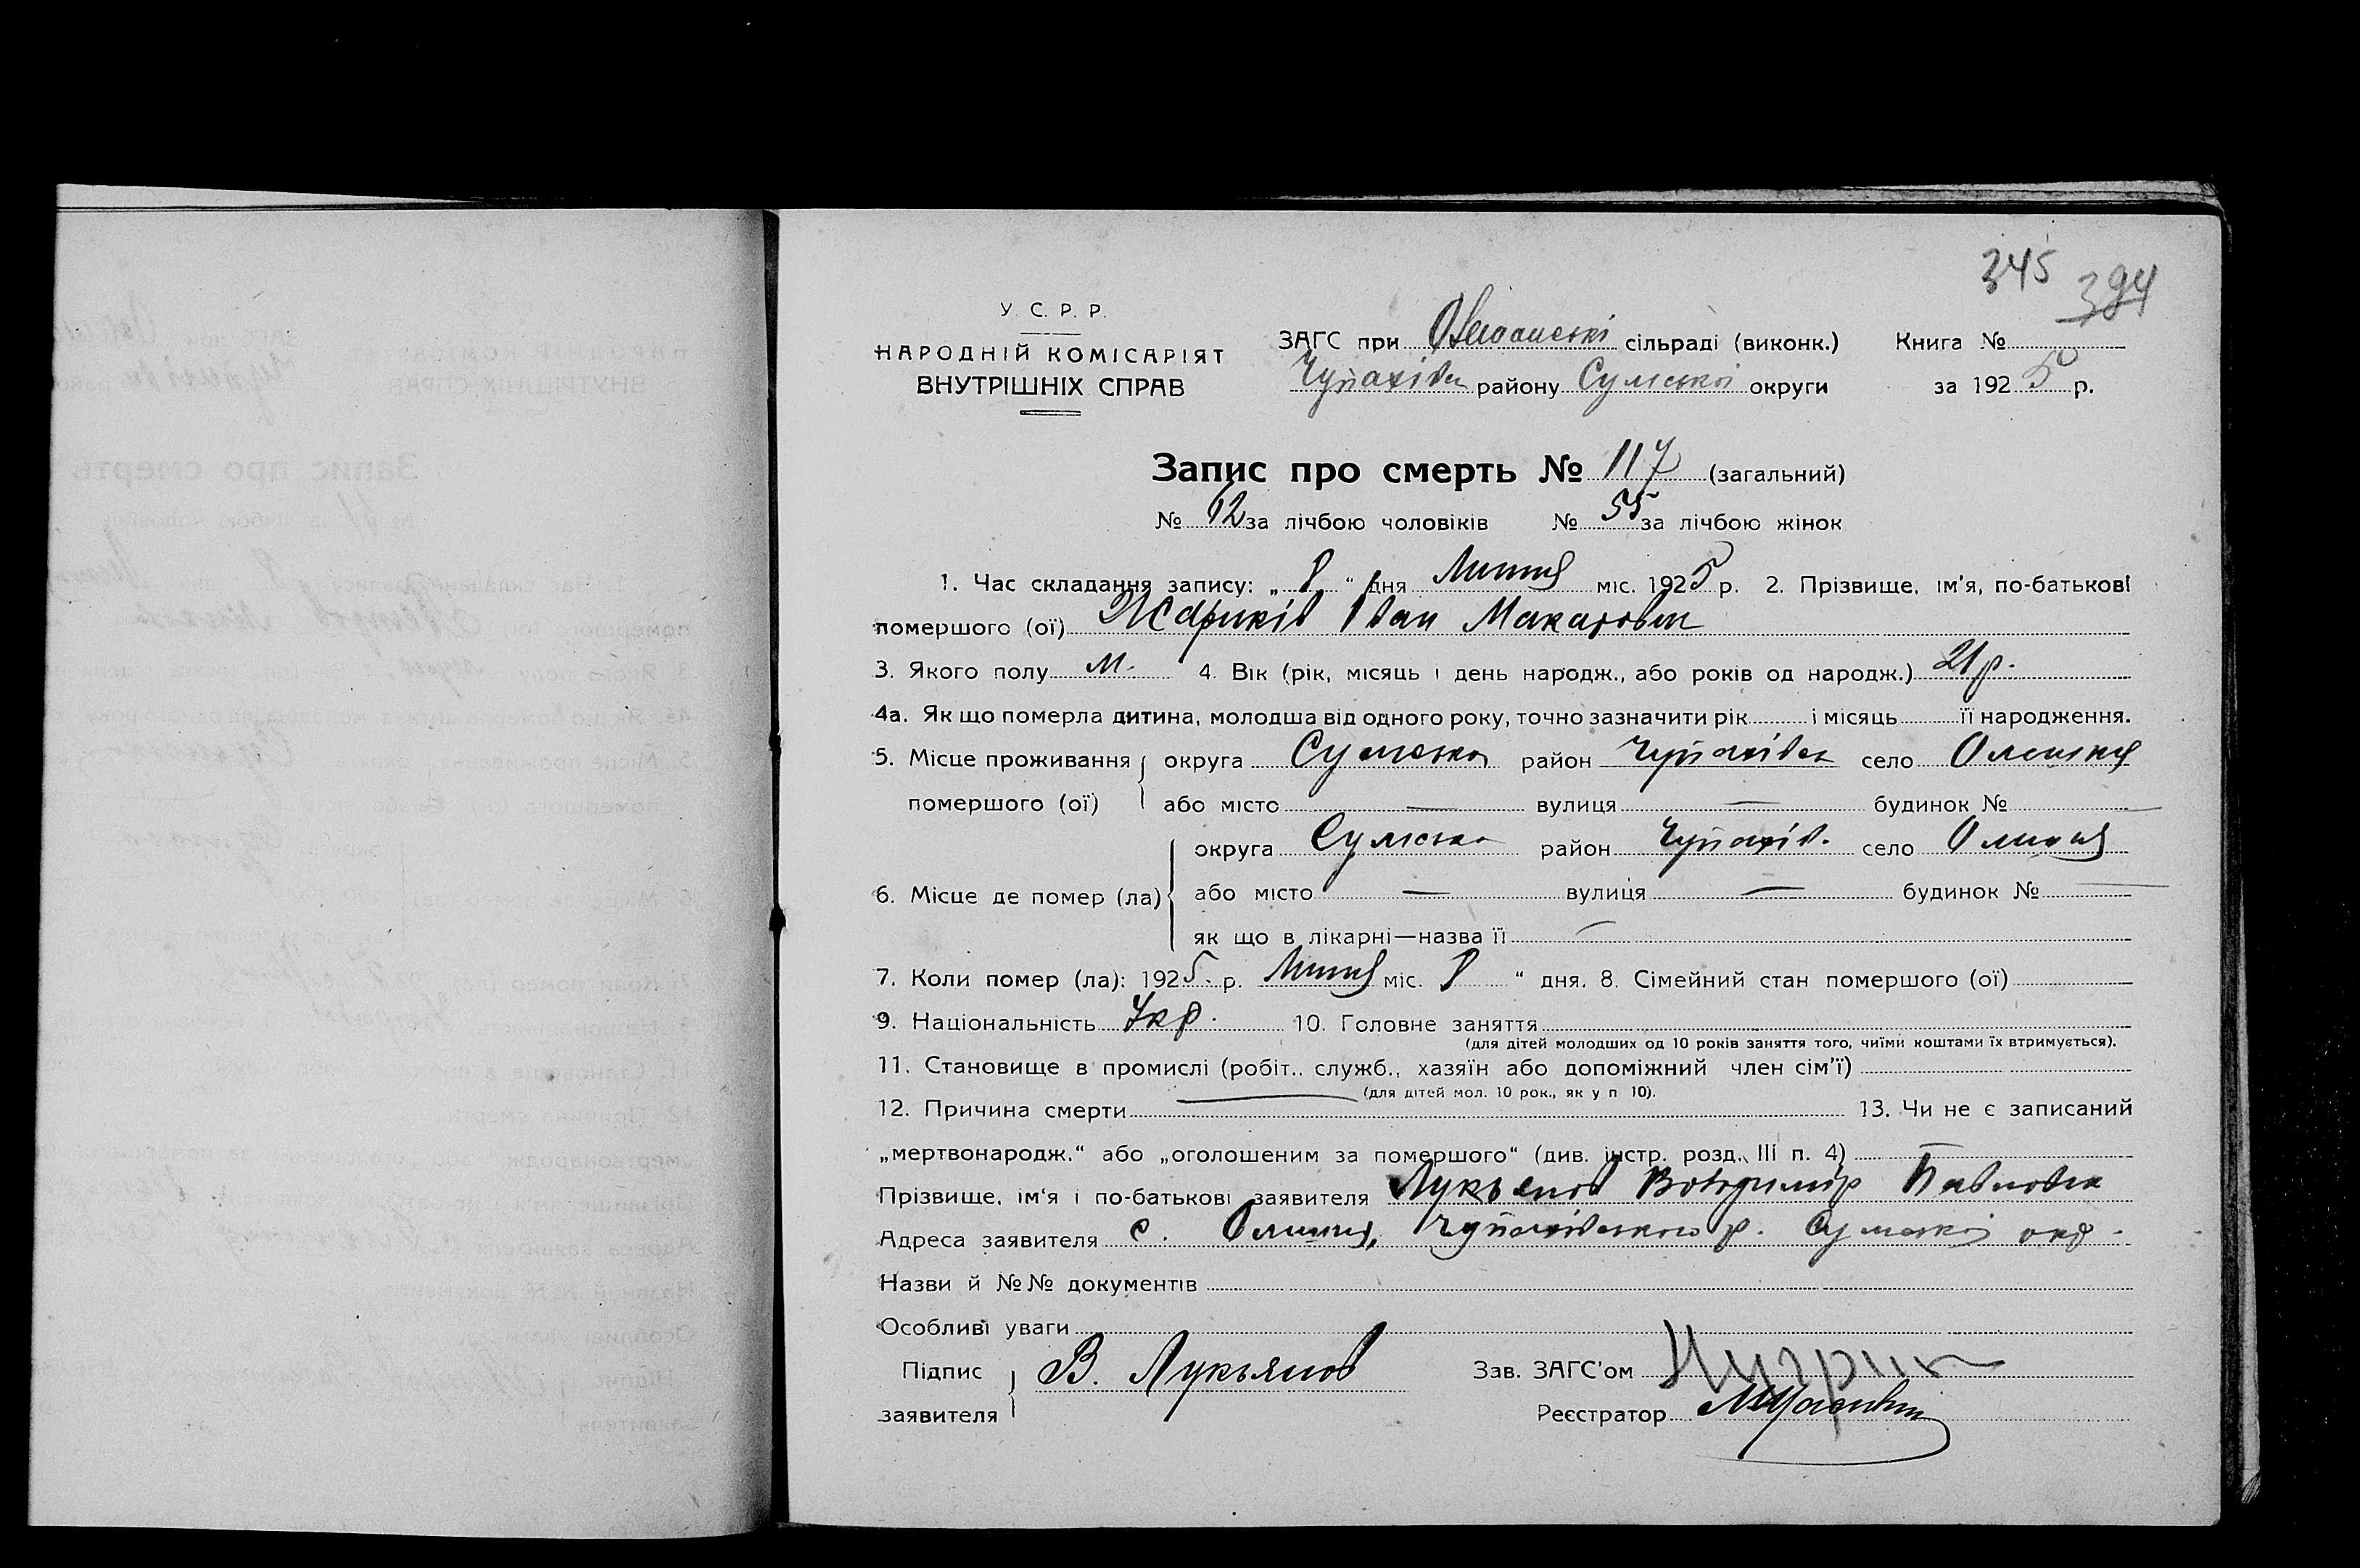 345 394
У. С. Р. Р.
НАРОДНІЙ КОМІСАРІЯТ
ВНУТРІШНІХ СПРАВ
ЗАГС при сільраді (виконк.) Книга №
Чупахівск району Сумської округи за 1925 р.
Запис про смерть № 117 (загальний)
№ 62 за лічбою чоловіків № 55 за лічбою жінок
1. Час складання запису: „ 8 “ дня Липня міс. 1925 р. 2. Прізвище, ім'я, по-батькові
помершого (ої) Жариків Іван Макарович
3. Якого полу м. 4. Вік (рік, місяць і день народж., або років од народж.) 21 р.
4а. Як що померла дитина, молодша від одного року, точно зазначити рік і місяць її народження.
5. Місце проживання округа Сумська район Чупахівск село Олешня
помершого (ої) або місто — вулиця — будинок № —
округа Сумська район Чупахів. село Олешня
6. Місце де помер (ла) або місто — вулиця — будинок № —
як що в лікарні—назва її —
7. Коли помер (ла): 1925. р. Липня міс. 8 “ дня. 8. Сімейний стан помершого (ої)
9. Національність Укр. 10. Головне заняття
(для дітей молодших од 10 років заняття того, чиїми коштами їх втримується).
11. Становище в промислі (робіт., служб., хазяїн або допоміжний член сім'ї)
(для дітей мол. 10 рок., як у п 10).
12. Причина смерти — 13. Чи не є записаний
„мертвонародж.“ або „оголошеним за помершого“ (див. інстр. розд. III п. 4) —
Прізвище, ім'я і по-батькові заявителя Лукьянов Володимір Павлович
Адреса заявителя с. Олешня, Чупахівського р. Сумської окр.
Назви й №№ документів
Особливі уваги
Підпис В. Лукьянов Зав. ЗАГС'ом
заявителя Реєстратор